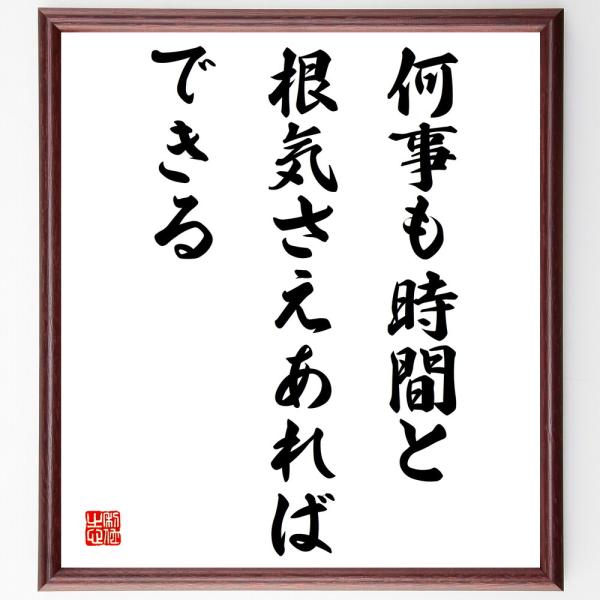 何事も時間と
根気さえあれば
できる